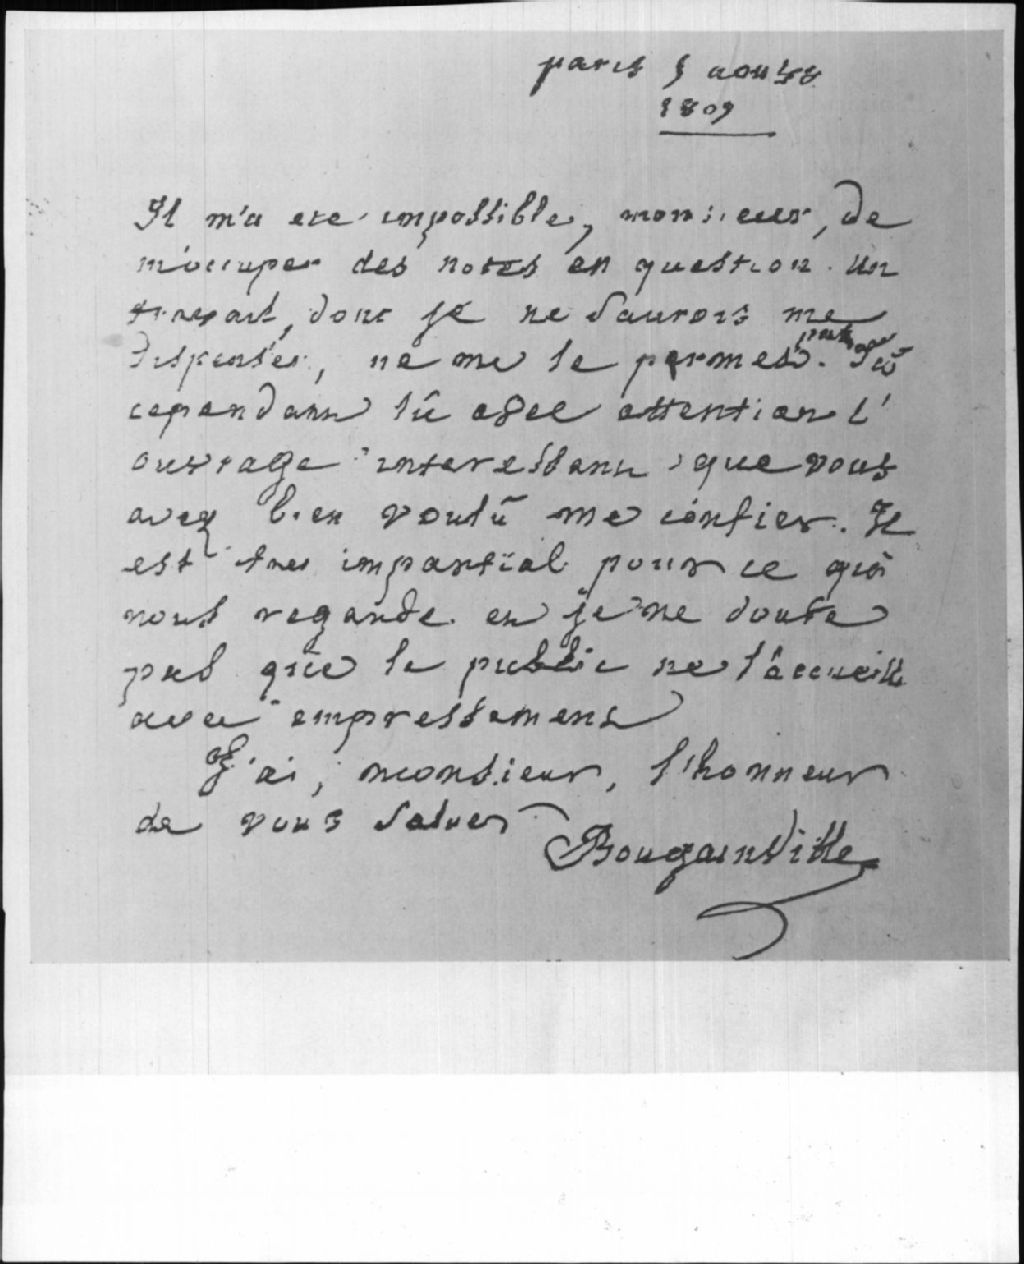 paris 5 aoust
1809
Il m'a ete impossible, monsieur, de
m'occuper des notes en question. Un
travail, dont je ne saurois me
dispenser, ne me le permet pas. J'ai
cependant lû avec attention l'
ouvrage interessant que vous
avez bien voulû me confier. Il
est tres impartial pour ce qui
nous regarde et je ne doute
pas que le public ne l'accueille
avec empressement
J'ai, monsieur, l'honneur
de vous saluer
Bougainville